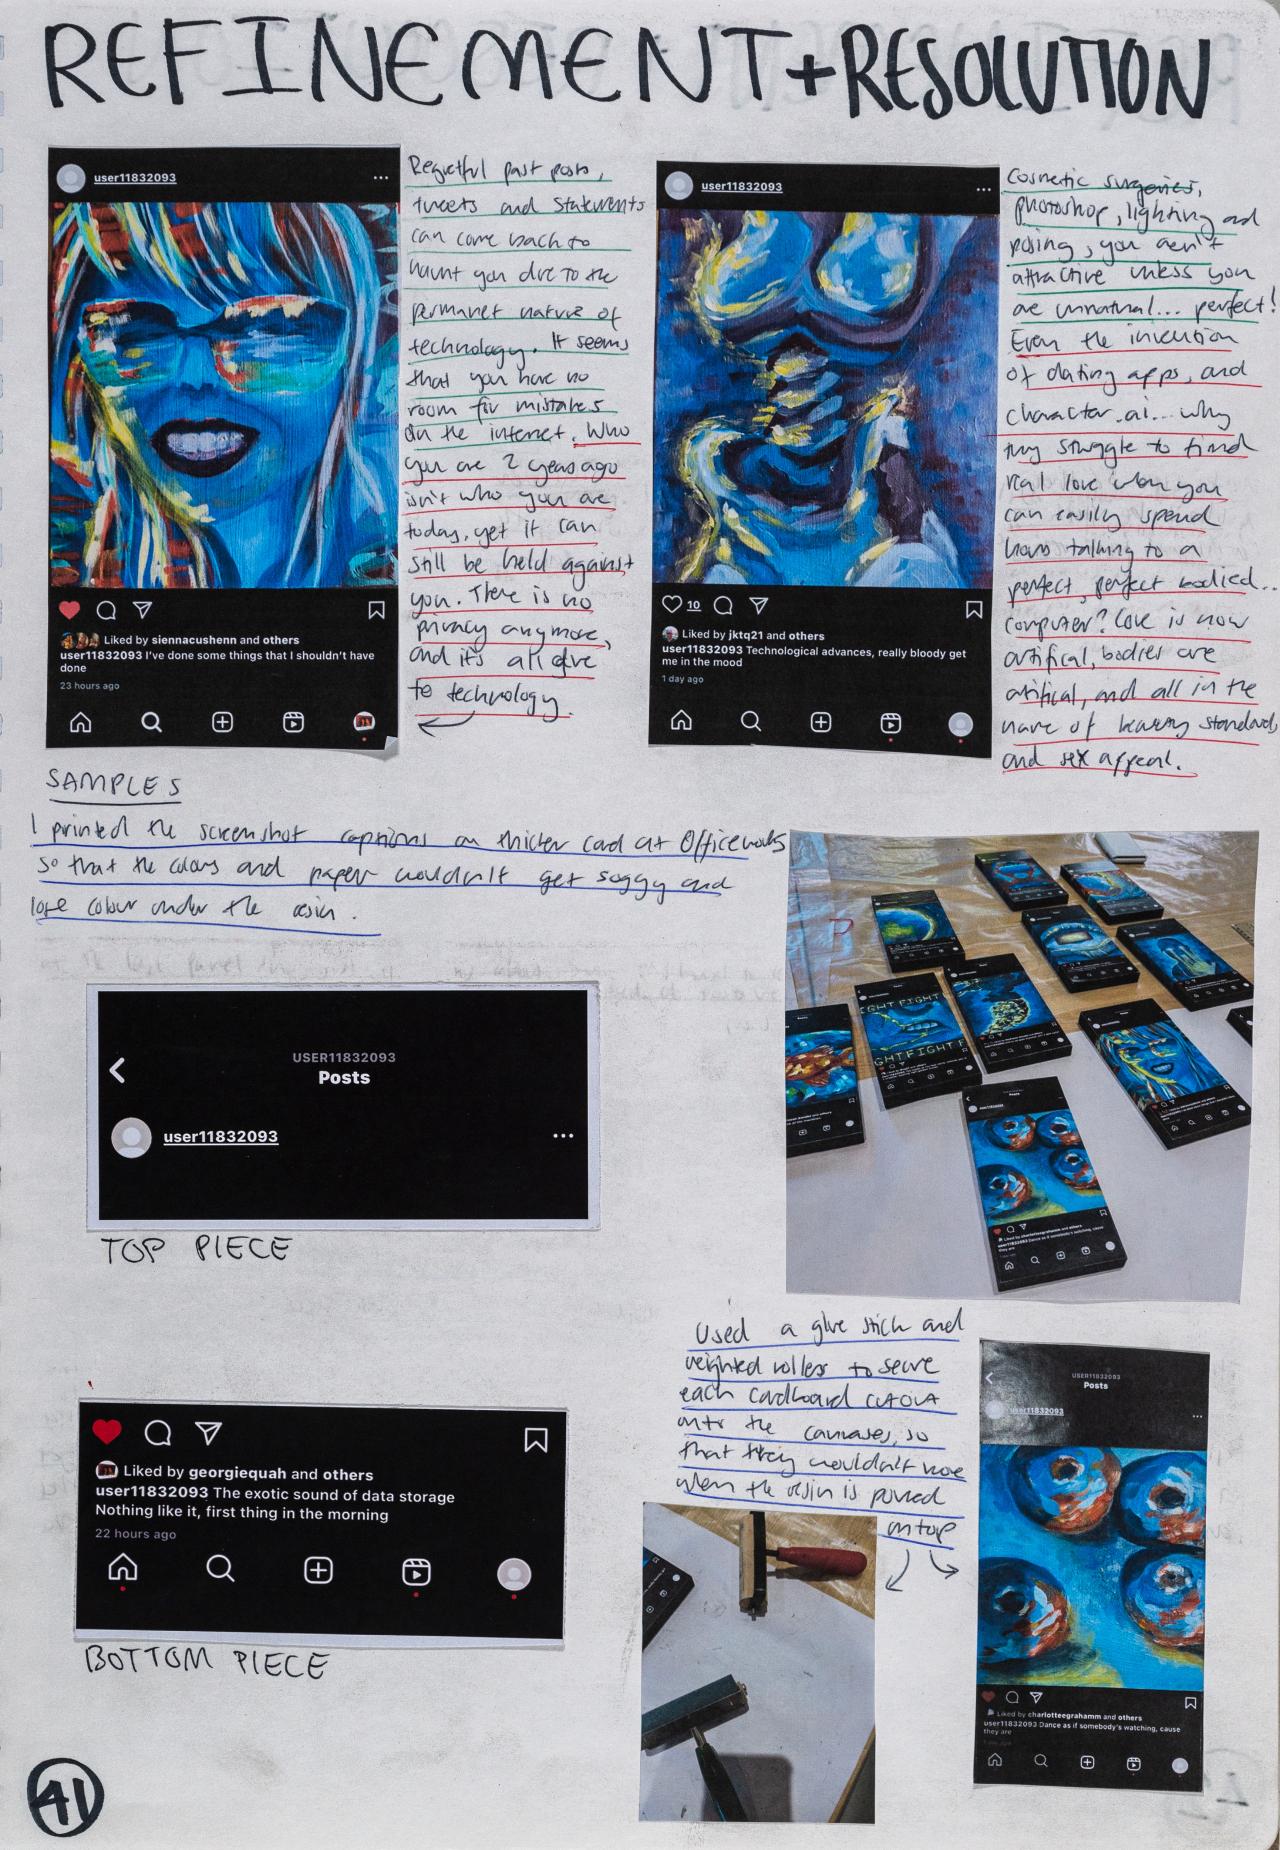 REFINEMENT + RESOLUTION
user11832093
Regretful past posts,
tweets and statements
can come back to
haunt you due to the
permanet nature of
technology. It seems
that you have no
room for mistakes
on the internet. Who
you are 2 years ago
isn't who you are
today, yet it can
still be held against
you. There is no
privacy anymore,
and it's all due
to technology.
Liked by siennacushenn and others
user11832093 I've done some things that I shouldn't have
done
23 hours ago
user11832093
Cosmetic surgeries,
photoshop, lighting and
posing, you aren't
attractive unless you
are unnatural... perfect!
Even the invention
of dating apps, and
character.ai... why
try struggle to find
real love when you
can easily spend
hours talking to a
perfect, perfect bodied...
computer? Love is now
artifical, bodies are
artifical, and all in the
name of beauty standards
and sex appeal.
10
Liked by jktq21 and others
user11832093 Technological advances, really bloody get
me in the mood
1 day ago
SAMPLES
I printed the screenshot captions on thicker card at Officeworks
so that the colours and paper wouldn't get soggy and
lose colour under the resin.
USER11832093
Posts
user11832093
TOP PIECE
Posts
IGHT FIGHT
GHT FIGHT F
Liked by charlotteegrahamm and others
user11832093 Dance as if somebody's watching, cause
they are
Liked by georgiequah and others
user11832093 The exotic sound of data storage
Nothing like it, first thing in the morning
22 hours ago
BOTTOM PIECE
Used a glue stick and
weighted rollers to secure
each cardboard cutout
onto the canvases, so
that they wouldn't move
when the resin is poured
on top
USER11832093
Posts
user11832093
Liked by charlotteegrahamm and others
user11832093 Dance as if somebody's watching, cause
they are
41